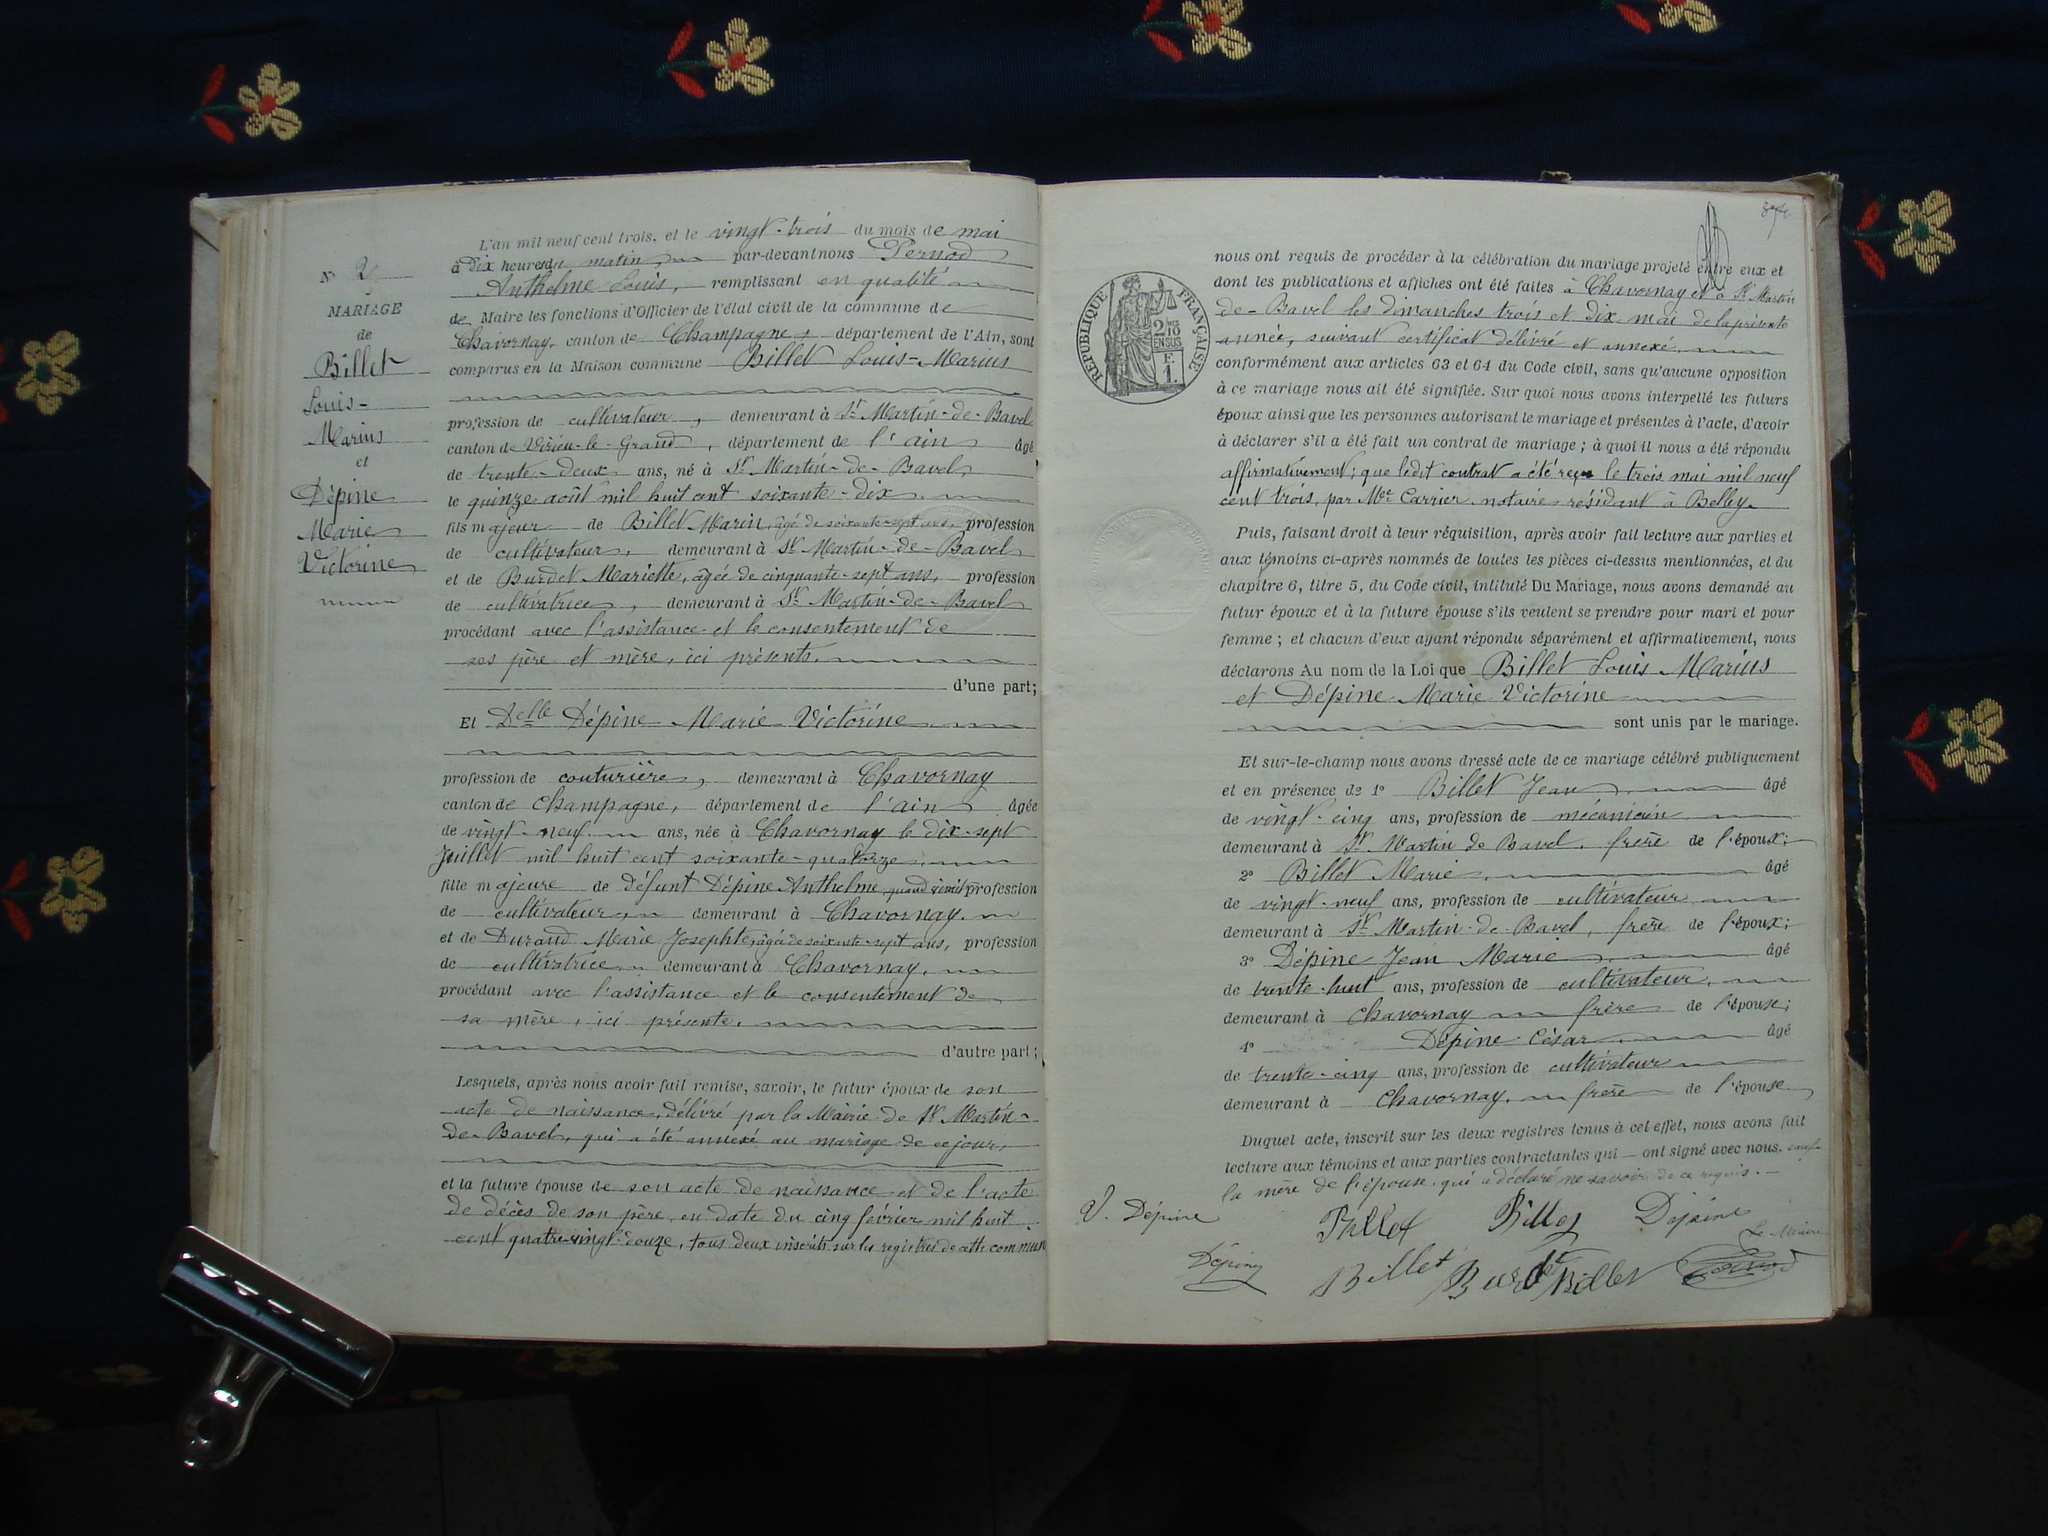 N° 2
MARIAGE
de
Billet
Louis-
Marius
et
Dépine
Marie
Victorine
L'an mil neuf cent trois, et le vingt-trois du mois de mai
à dix heures du matin, par-devant nous Pernod
Anthelme Louis, remplissant en qualité
de Maire les fonctions d'Officier de l'état civil de la commune de
Chavornay, canton de Champagne, département de l'Ain, sont
comparus en la Maison commune Billet Louis-Marius
profession de cultivateur, demeurant à St Martin-de-Bavel
canton de Virieu-le-Grand, département de l'ain âgé
de trente-deux ans, né à St Martin-de-Bavel,
le quinze août mil huit cent soixante-dix
fils majeur de Billet Marin, âgé de soixante-sept ans, profession
de cultivateur, demeurant à St Martin-de-Bavel
et de Burdet Mariette, âgée de cinquante-sept ans, profession
de cultivatrice, demeurant à St Martin-de-Bavel
procédant avec l'assistance et le consentement de
ses père et mère, ici présents.
d'une part;
Et Delle Dépine Marie Victorine
profession de couturière, demeurant à Chavornay
canton de Champagne, département de l'ain âgée
de vingt-neuf ans, née à Chavornay le dix-sept
Juillet mil huit cent soixante-quatorze,
fille majeure de défunt Dépine Anthelme quand vivait profession
de cultivateur demeurant à Chavornay.
et de Durand Marie Josephte, âgée de soixante-sept ans, profession
de cultivatrice demeurant à Chavornay,
procédant avec l'assistance et le consentement de
sa mère, ici présente.
d'autre part;
Lesquels, après nous avoir fait remise, savoir, le futur époux de son
acte de naissance, délivré par la Mairie de St Martin-
de-Bavel, qui a été annexé au mariage de ce jour,
et la future épouse de son acte de naissance et de l'acte
de décès de son père, en date du cinq février mil huit
cent quatre-vingt-douze, tous deux inscrits sur les registres de cette commune
nous ont requis de procéder à la célébration du mariage projeté entre eux et
dont les publications et affiches ont été faites à Chavornay et à St Martin
de-Bavel les dimanches trois et dix mai de la présente
année, suivant certificat délivré et annexé
RÉPUBLIQUE FRANÇAISE
2 1/10
EN SUS
F.
1.
conformément aux articles 63 et 64 du Code civil, sans qu'aucune opposition
à ce mariage nous ait été signifiée. Sur quoi nous avons interpellé les futurs
époux ainsi que les personnes autorisant le mariage et présentes à l'acte, d'avoir
à déclarer s'il a été fait un contrat de mariage; à quoi il nous a été répondu
affirmativement; que ledit contrat a été reçu le trois mai mil neuf
cent trois, par Me Carrier notaire résidant à Belley.
Puis, faisant droit à leur réquisition, après avoir fait lecture aux parties et
aux témoins ci-après nommés de toutes les pièces ci-dessus mentionnées, et du
chapitre 6, titre 5, du Code civil, intitulé Du Mariage, nous avons demandé au
futur époux et à la future épouse s'ils veulent se prendre pour mari et pour
femme; et chacun d'eux ayant répondu séparément et affirmativement, nous
déclarons Au nom de la Loi que Billet Louis Marius
et Dépine Marie Victorine
sont unis par le mariage.
Et sur-le-champ nous avons dressé acte de ce mariage célébré publiquement
et en présence de 1° Billet Jean âgé
de vingt-cinq ans, profession de mécanicien
demeurant à St Martin de Bavel, frère de l'époux;
2° Billet Marie, âgé
de vingt-neuf ans, profession de cultivateur
demeurant à St Martin-de-Bavel, frère de l'époux;
3° Dépine Jean Marie âgé
de trente-huit ans, profession de cultivateur,
demeurant à Chavornay frère de l'épouse;
4° Dépine César âgé
de trente-cinq ans, profession de cultivateur
demeurant à Chavornay, frère de l'épouse
Duquel acte, inscrit sur les deux registres tenus à cet effet, nous avons fait
lecture aux témoins et aux parties contractantes qui ont signé avec nous,
la mère de l'épouse qui a déclaré ne savoir de ce requis.
V. Dépine Billet Billet Dépine
Le Maire
Dépine Billet Burdet Billet Pernod